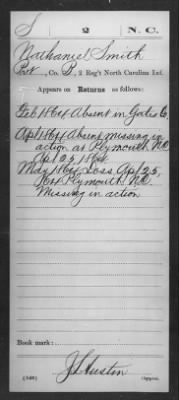 S 2 N.C.
Nathaniel Smith
Pvt, Co. B, 2 Reg't North Carolina Inf.
Appears on Returns as follows:
Feb 1864 Absent in Gates Co,
Apl 1864 Absent missing in
action at Plymouth N.C.
Apl 25 1864.
May 1864, Loss Apl 25,
Plymouth N.C.
Missing in action
Book mark:
(546)
Copyist.